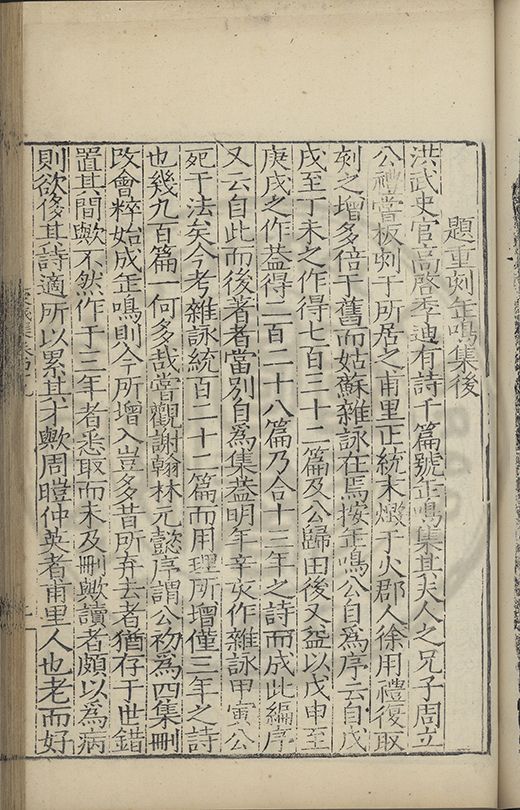 題重刻缶鳴集後
洪武史官高啓季迪有詩千篇號缶鳴集其夫人之兄子周立
公禮嘗板刻于所居之甫里正統末燬于火郡人徐用禮復取
刻之增多倍于舊而姑蘇雜詠在焉按缶鳴公自爲序云自戊
戌至丁未之作得七百三十二篇及公歸田後又益以戊申至
庚戌之作葢得二百二十八篇乃合十三年之詩而成此編序
又云自此而後著者當别自爲集葢明年辛亥作雜詠甲寅公
死于法矣今考雜詠統百二十二篇而用理所增僅三年之詩
也幾九百篇一何多哉嘗觀謝翰林元懿序謂公初爲四集刪
改會粹始成缶鳴則今所增入豈多昔所弃去者猶存于世錯
置其間歟不然作于三年者悉取而未及刪歟讀者頗以為病
則欲侈其詩適所以累其才歟周暟仲英者甫里人也老而好